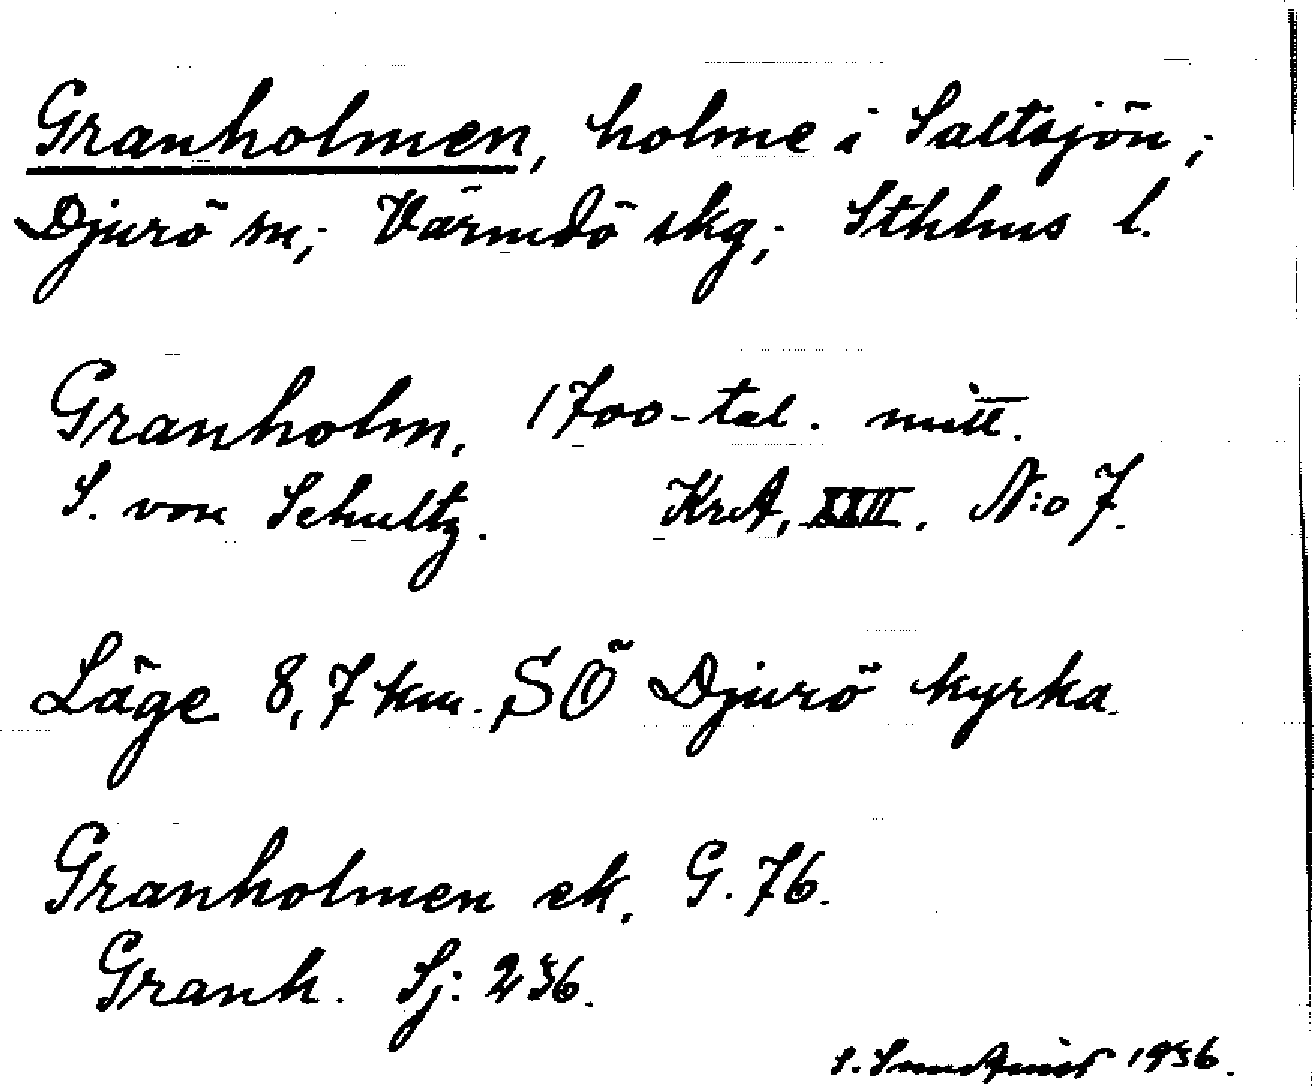 Granholmen, holme i Saltsjön;
Djurö sn; Värmdö skg; Sthlms l.
Granholm. 1700-tal. mitt.
S. von Schultz. KrA, XXII. N:o 7.
Läge 8,7 km. SÖ Djurö kyrka.
Granholmen ek. G. 76.
Granh. Sj: 236.
1936.